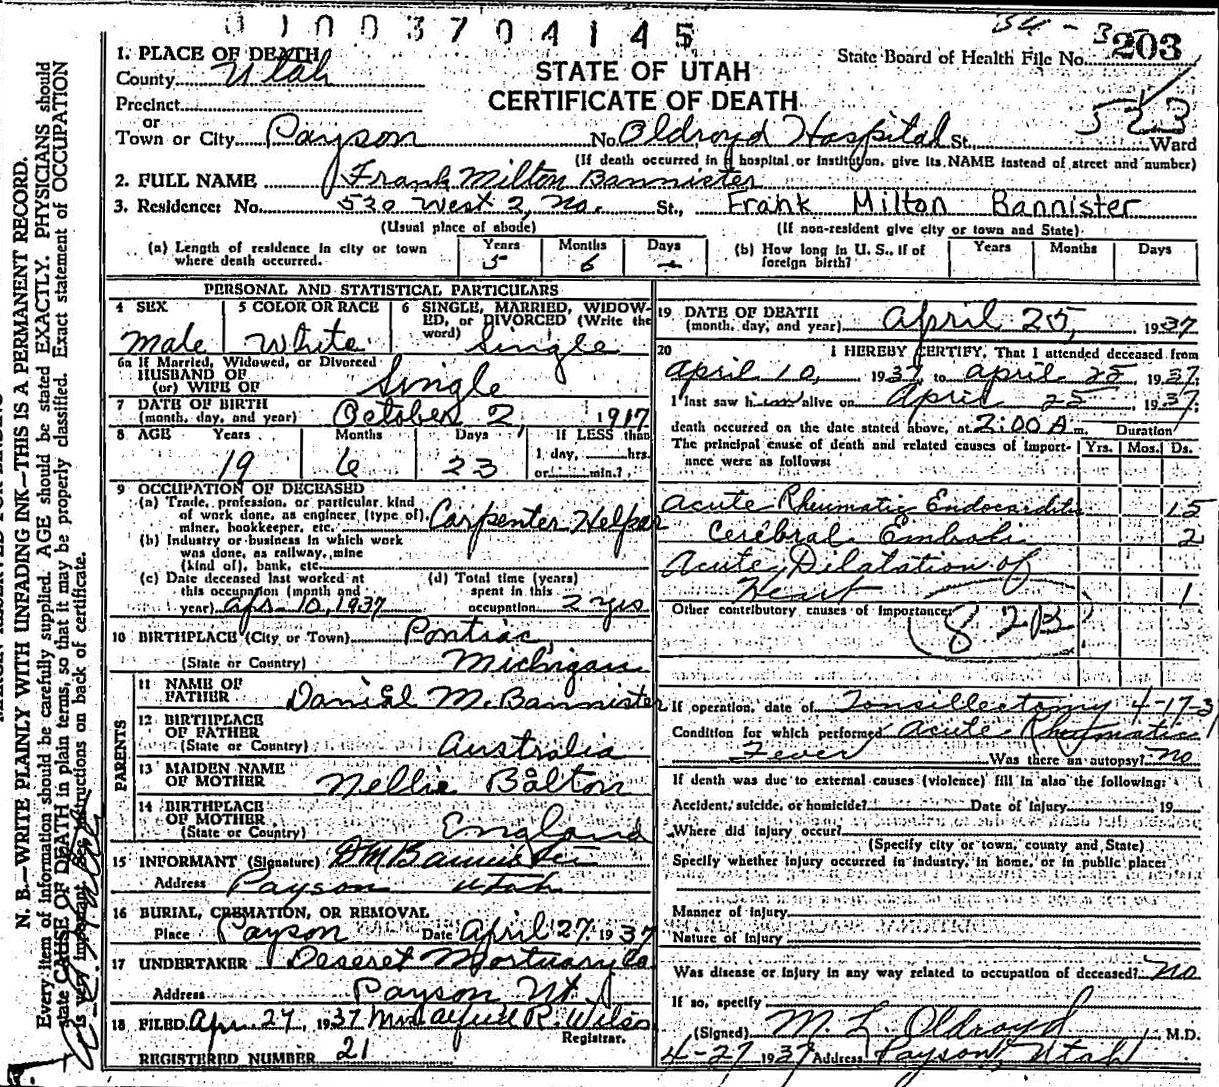 01003704145
34-3
State Board of Health File No. 203
523
1. PLACE OF DEATH
County Utah
STATE OF UTAH
CERTIFICATE OF DEATH
Precinct
or
Town or City Payson No. Oldroyd Hospital St., Ward
(If death occurred in a hospital or institution, give its NAME instead of street and number)
2. FULL NAME Frank Milton Bannister
3. Residence: No. 530 West 2, No. St., Frank Milton Bannister
(Usual place of abode) (If non-resident give city or town and State)
(a) Length of residence in city or town where death occurred. Years 5 Months 6 Days -
(b) How long in U. S., if of foreign birth? Years Months Days
PERSONAL AND STATISTICAL PARTICULARS
4 SEX Male
5 COLOR OR RACE White
6 SINGLE, MARRIED, WIDOWED, or DIVORCED (Write the word) Single
6a If Married, Widowed, or Divorced
HUSBAND OF
(or) WIFE OF Single
7 DATE OF BIRTH
(month, day, and year) October 2, 1917
8 AGE Years Months Days If LESS than
19 6 23 1 day, hrs.
or min.?
9 OCCUPATION OF DECEASED
(a) Trade, profession, or particular, kind
of work done, as engineer (type of),
miner, bookkeeper, etc. Carpenter Helper
(b) Industry or business in which work
was done, as railway, mine
(kind of), bank, etc.
(c) Date deceased last worked at
this occupation (month and
year) Apr. 10, 1937
(d) Total time (years)
spent in this
occupation 2 yrs
10 BIRTHPLACE (City or Town) Pontiac,
(State or Country) Michigan
PARENTS
11 NAME OF
FATHER Daniel M. Bannister
12 BIRTHPLACE
OF FATHER
(State or Country) Australia
13 MAIDEN NAME
OF MOTHER Nellie Bolton
14 BIRTHPLACE
OF MOTHER
(State or Country) England
15 INFORMANT (Signature) D M Bannister
Address Payson Utah
16 BURIAL, CREMATION, OR REMOVAL
Place Payson Date April 27, 1937
17 UNDERTAKER Deseret Mortuary Co
Address Payson Ut.
18 FILED Apr. 27, 1937 Mrs. R. Wilson
Registrar.
REGISTERED NUMBER 21
19 DATE OF DEATH
(month, day, and year) April 25, 1937
20 I HEREBY CERTIFY, That I attended deceased from
April 10, 1937, to April 25 1937.
I last saw him alive on April 25 1937.
death occurred on the date stated above, at 2:00 A m. Duration
The principal cause of death and related causes of importance were as follows: Yrs. Mos. Ds.
Acute Rheumatic Endocarditis 15
Cerebral Emboli 2
Acute Dilatation of
Heart 1
Other contributory causes of importance:
82B
If operation, date of Tonsillectomy 4-17-3
Condition for which performed Acute Rheumatic
Fever Was there an autopsy? No
If death was due to external causes (violence) fill in also the following:
Accident, suicide, or homicide? Date of injury 19
Where did injury occur?
(Specify city or town, county and State)
Specify whether injury occurred in industry, in home, or in public place:
Manner of injury
Nature of injury
Was disease or injury in any way related to occupation of deceased? No
If so, specify
(Signed) M. L. Oldroyd M.D.
4-27 1937 Address Payson, Utah
N. B.—WRITE PLAINLY WITH UNFADING INK—THIS IS A PERMANENT RECORD.
Every item of information should be carefully supplied. AGE should be stated EXACTLY. PHYSICIANS should
state CAUSE OF DEATH in plain terms, so that it may be properly classified. Exact statement of OCCUPATION
is very important. See instructions on back of certificate.